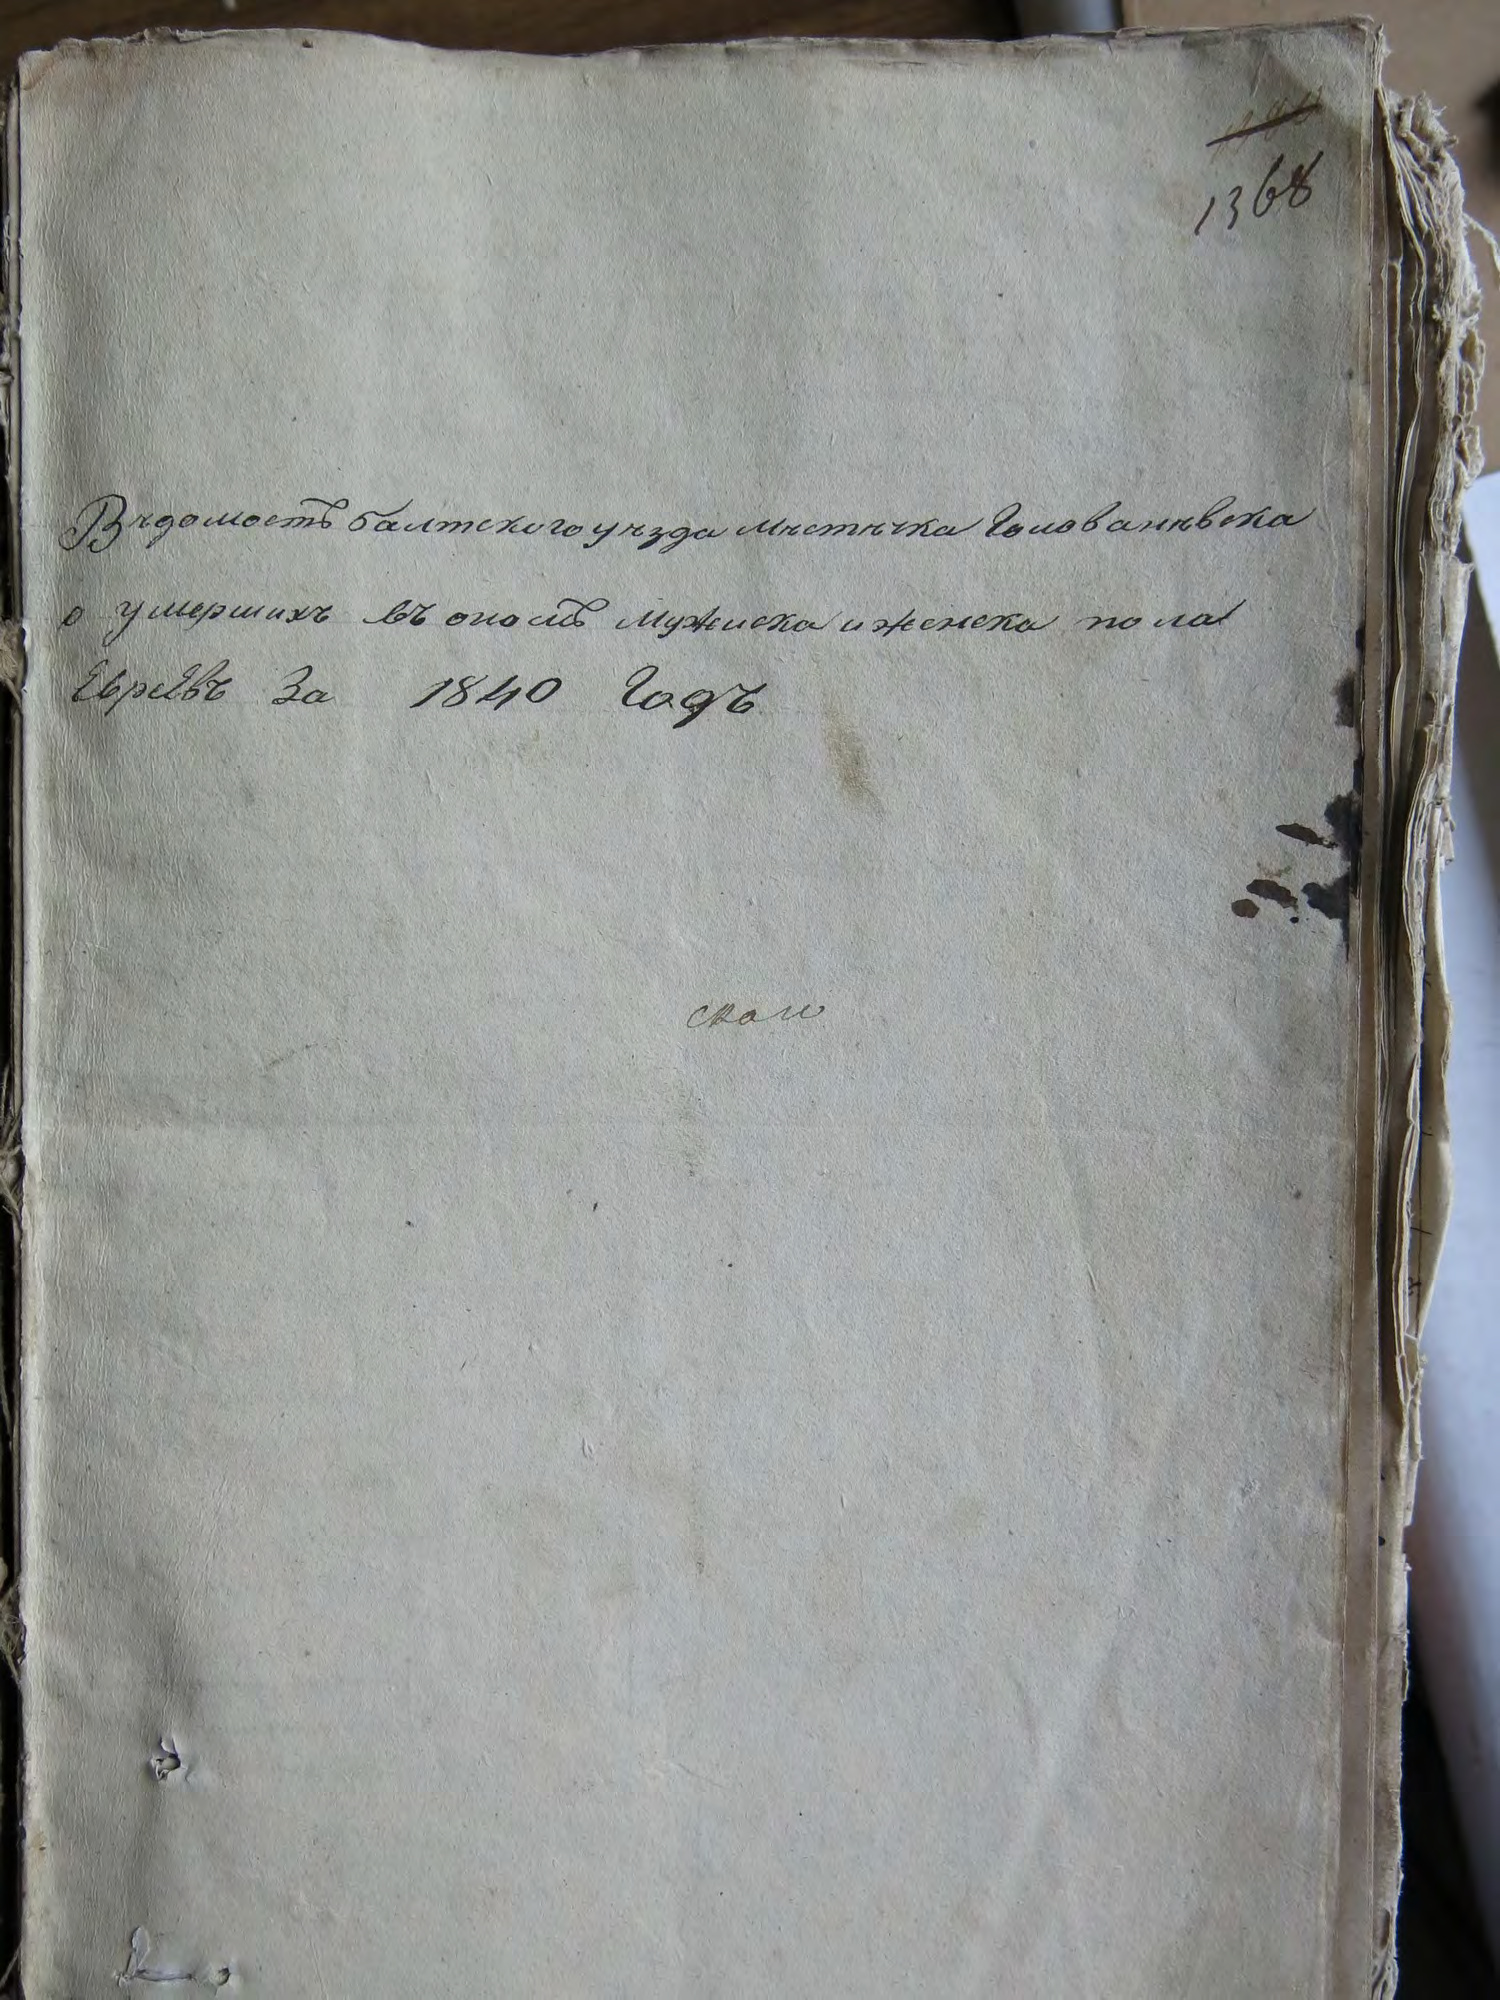 1368
Вѣдомость балтскего уѣзда мѣстѣчка Голованѣвска
о умершихъ въ ономъ мужиска и женска пола
Евреѣвъ За 1840 Годъ